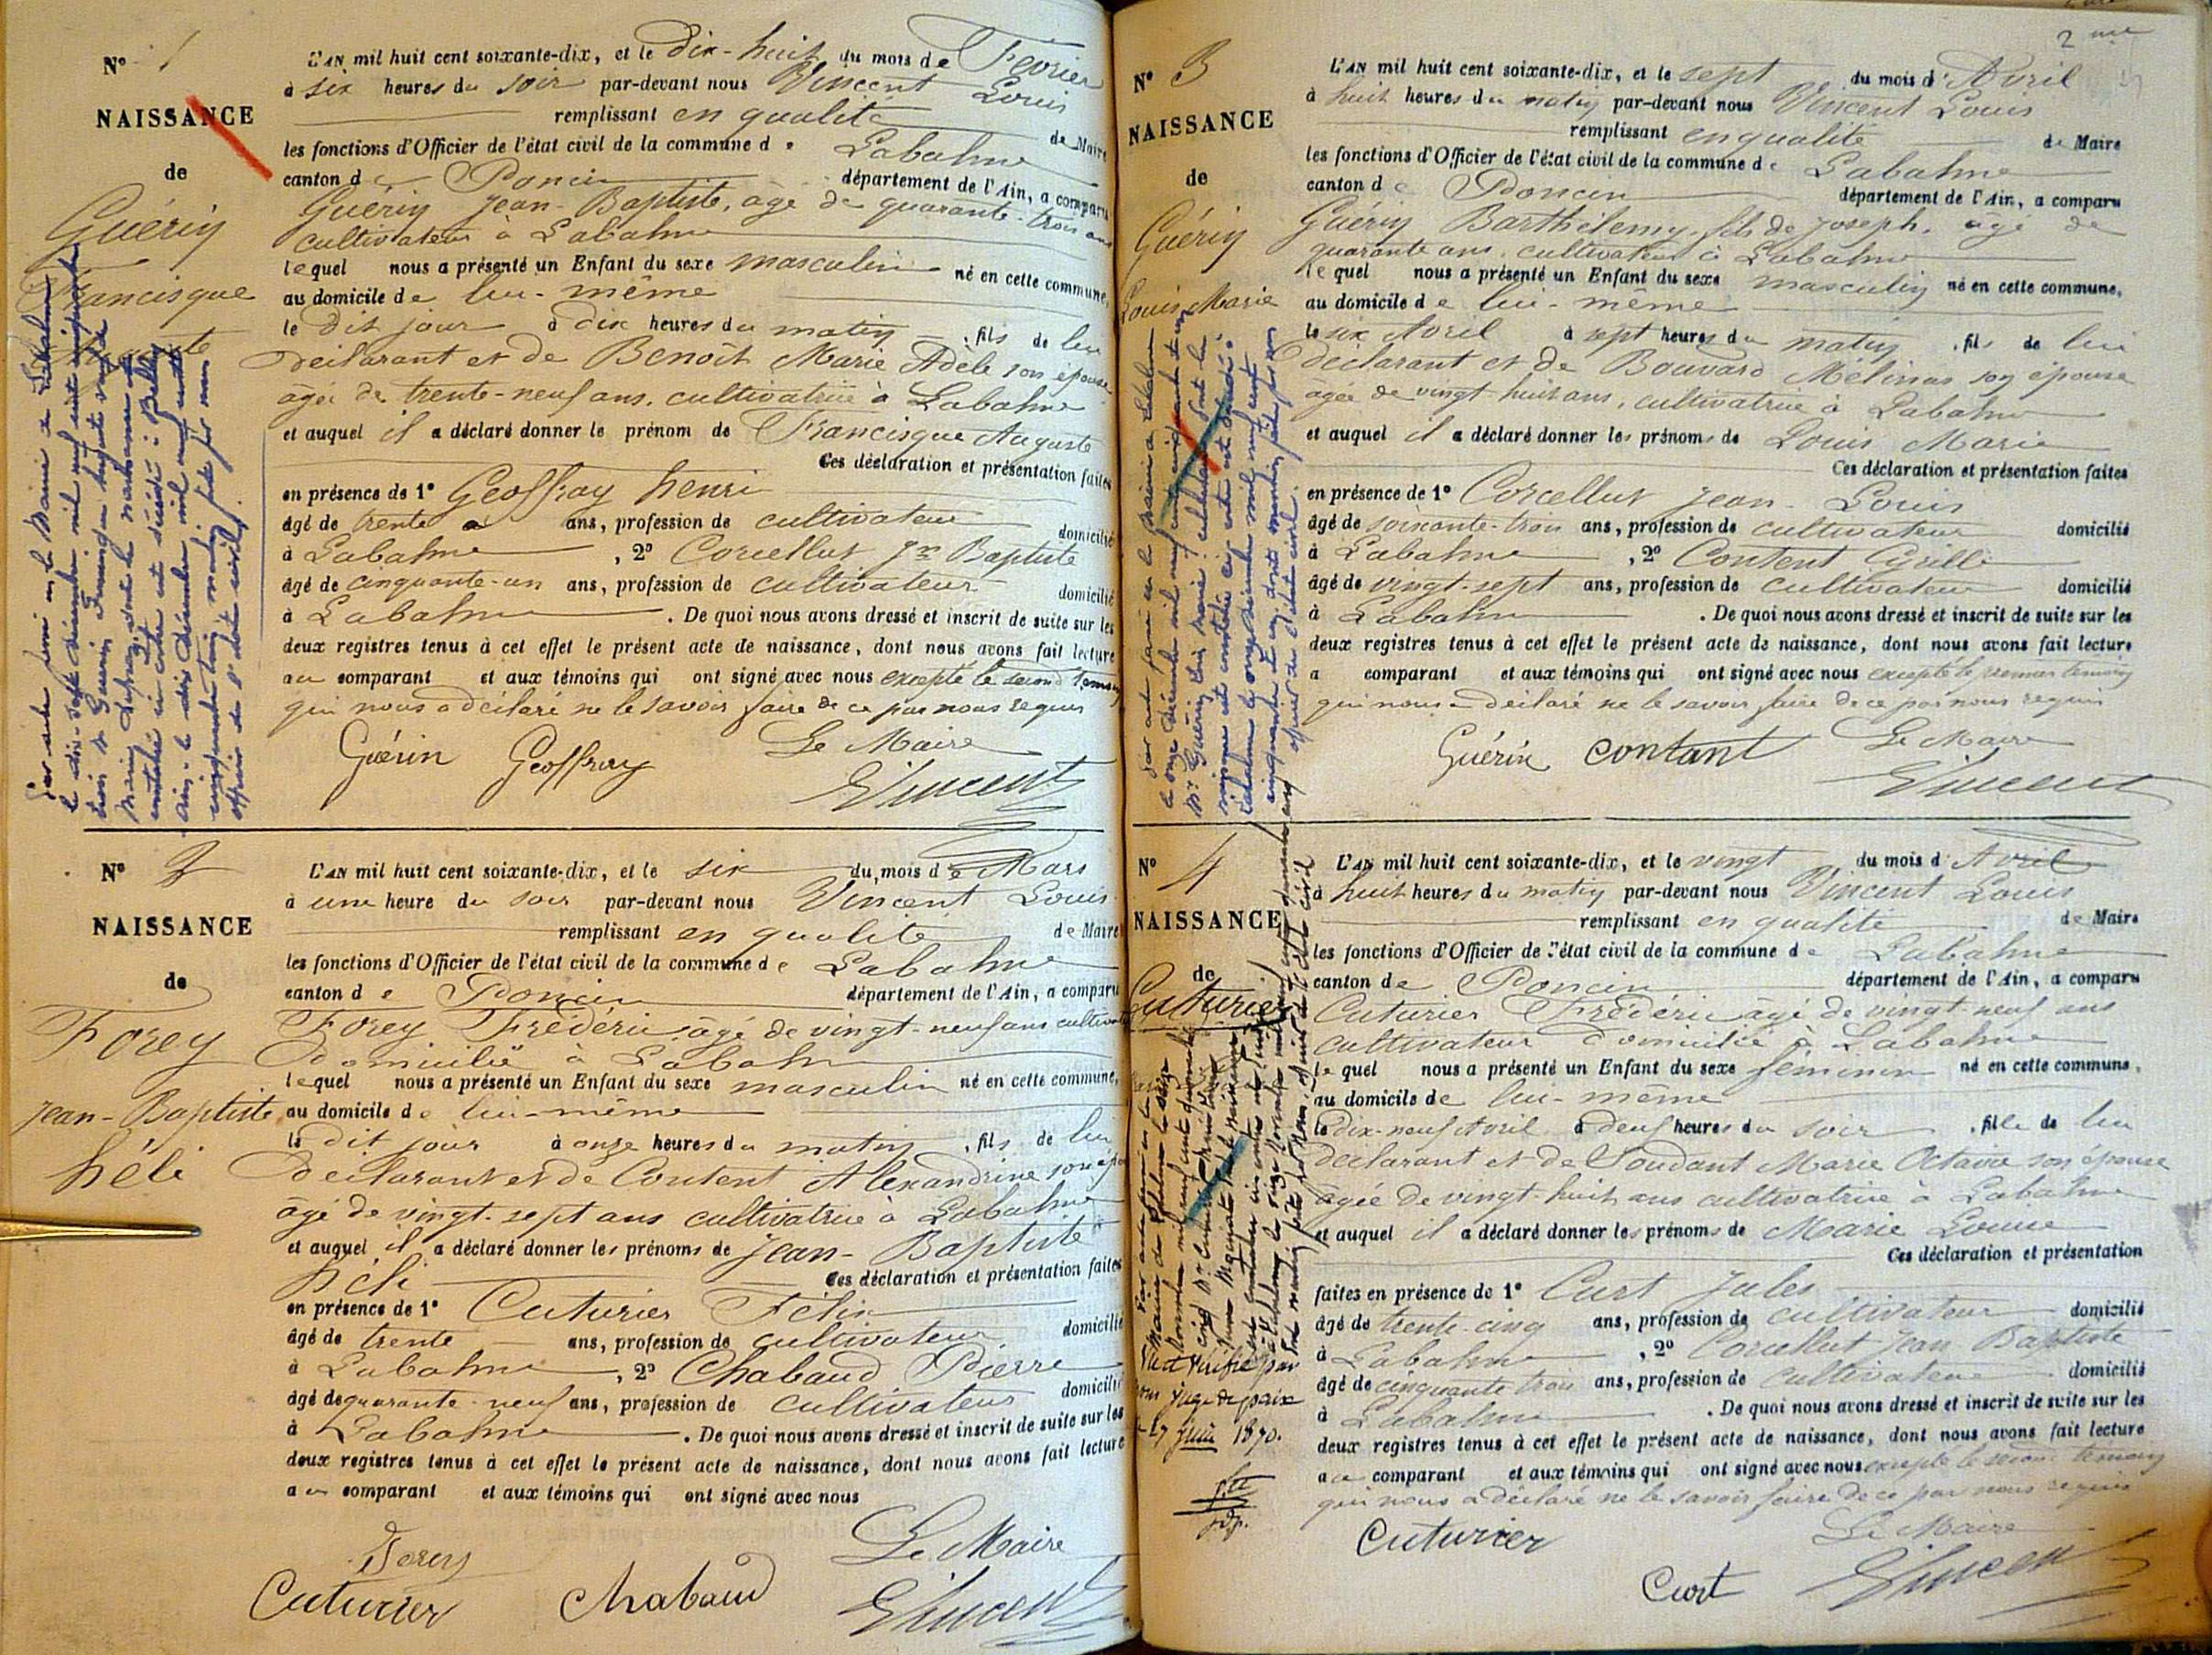 N° 1
NAISSANCE
de
Guérin
Francisque
L'AN mil huit cent soixante-dix, et le dix-huit du mois de Fevrier
à six heures du soir par-devant nous Vincent Louis
remplissant en qualité de Maire
les fonctions d'Officier de l'état civil de la commune de Labalme
canton de Poncin département de l'Ain, a comparu
Guérin Jean-Baptiste, âgé de quarante-trois ans
cultivateur à Labalme
lequel nous a présenté un Enfant du sexe masculin né en cette commune,
au domicile de lui-même
le dit jour à dix heures du matin, fils de lui
déclarant et de Benoît Marie Adèle son épouse
âgée de trente-neuf ans, cultivatrice à Labalme
et auquel il a déclaré donner le prénom de Francisque Auguste
Ces déclaration et présentation faites
en présence de 1° Geoffray henri
âgé de trente ans, profession de cultivateur domicilié
à Labalme, 2° Corcellut Jn Baptiste
âgé de cinquante-un ans, profession de cultivateur domicilié
à Labalme. De quoi nous avons dressé et inscrit de suite sur les
deux registres tenus à cet effet le présent acte de naissance, dont nous avons fait lecture
au comparant et aux témoins qui ont signé avec nous excepté le second temoin
qui nous a déclaré ne le savoir faire de ce par nous requis
Guérin Geoffray Le Maire
Vincent
N° 2
NAISSANCE
de
Forey
Jean-Baptiste
héli
L'AN mil huit cent soixante-dix, et le six du mois de Mars
à une heure du soir par-devant nous Vincent Louis
remplissant en qualité de Maire
les fonctions d'Officier de l'état civil de la commune de Labalme
canton de Poncin département de l'Ain, a comparu
Forey Frédéric âgé de vingt-neuf ans
domicilié à Labalme
lequel nous a présenté un Enfant du sexe masculin né en cette commune,
au domicile de lui-même
le dit jour à onze heures du matin, fils de lui
déclarant et de Content Alexandrine
âgé de vingt-sept ans cultivatrice à Labalme
et auquel il a déclaré donner les prénoms de Jean-Baptiste
héli Ces déclaration et présentation faites
en présence de 1° Cuturier Félix
âgé de trente ans, profession de cultivateur domicilié
à Labalme, 2° Chabaud Pierre
âgé de quarante-neuf ans, profession de cultivateur domicilié
à Labalme. De quoi nous avons dressé et inscrit de suite sur les
deux registres tenus à cet effet le présent acte de naissance, dont nous avons fait lecture
au comparant et aux témoins qui ont signé avec nous
Forey Le Maire
Cuturier Chabaud Vincent
2me
N° 3
NAISSANCE
de
Guérin
Louis Marie
L'AN mil huit cent soixante-dix, et le sept du mois d'Avril
à huit heures du matin par-devant nous Vincent Louis
remplissant en qualité de Maire
les fonctions d'Officier de l'état civil de la commune de Labalme
canton de Poncin département de l'Ain, a comparu
Guérin Barthélemy, fils de Joseph, âgé de
quarante ans, cultivateur à Labalme
lequel nous a présenté un Enfant du sexe masculin né en cette commune,
au domicile de lui-même
le six Avril à sept heures du matin, fils de lui
déclarant et de Bouvard Mélinas son épouse
âgée de vingt-huit ans, cultivatrice à Labalme
et auquel il a déclaré donner les prénoms de Louis Marie
Ces déclaration et présentation faites
en présence de 1° Corcellut Jean-Louis
âgé de soixante-trois ans, profession de cultivateur domicilié
à Labalme, 2° Content Cyrille
âgé de vingt-sept ans, profession de cultivateur domicilié
à Labalme. De quoi nous avons dressé et inscrit de suite sur les
deux registres tenus à cet effet le présent acte de naissance, dont nous avons fait lecture
a comparant et aux témoins qui ont signé avec nous excepté le premier témoin
qui nous a déclaré ne le savoir faire de ce par nous requis
Guérin contant Le Maire
Vincent
N° 4
NAISSANCE
de
Cuturier
Vu et vérifié par
nous juge de paix
17 juin 1870.
L'AN mil huit cent soixante-dix, et le vingt du mois d'Avril
à huit heures du matin par-devant nous Vincent Louis
remplissant en qualité de Maire
les fonctions d'Officier de l'état civil de la commune de Labalme
canton de Poncin département de l'Ain, a comparu
Cuturier Frédéric âgé de vingt neuf ans
cultivateur domicilié à Labalme
lequel nous a présenté un Enfant du sexe féminin né en cette commune,
au domicile de lui-même
le dix-neuf Avril à deux heures du soir, fille de lui
déclarant et de Soudant Marie Octavie son épouse
âgée de vingt-huit ans cultivatrice à Labalme
et auquel il a déclaré donner les prénoms de Marie Louise
Ces déclaration et présentation
faites en présence de 1° Curt Jules
âgé de trente-cinq ans, profession de cultivateur domicilié
à Labalme, 2° Corcellut Jean-Baptiste
âgé de cinquante trois ans, profession de cultivateur domicilié
à Labalme. De quoi nous avons dressé et inscrit de suite sur les
deux registres tenus à cet effet le présent acte de naissance, dont nous avons fait lecture
au comparant et aux témoins qui ont signé avec nous excepté le second témoin
qui nous a déclaré ne le savoir faire de ce par nous requis
Cuturier Le Maire
Curt Vincent